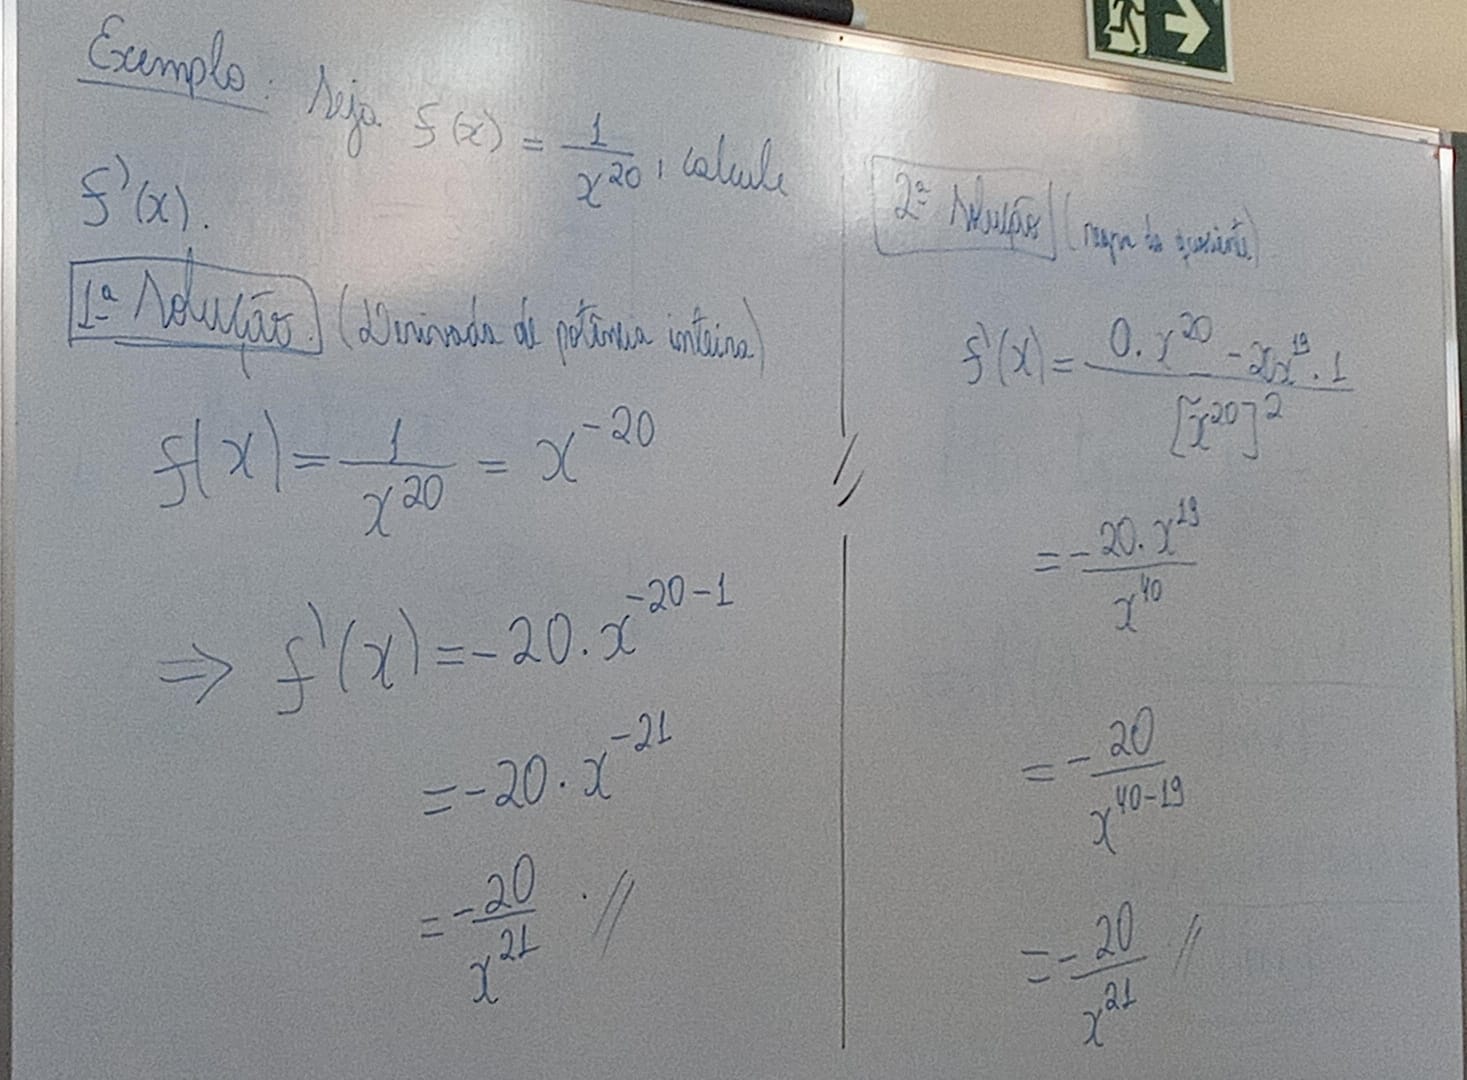 Exemplo: Seja f(x) = 1/x^20, calcule
f'(x).
1ª Solução. (Derivada de potência inteira)
f(x) = 1/x^20 = x^-20
⇒ f'(x) = -20·x^-20-1
= -20·x^-21
= -20/x^21 .//
2ª Solução (regra do quociente)
f'(x) = 0·x^20 - 20x^19·1 / [x^20]^2
= -20·x^19/x^40
= -20/x^40-19
= -20/x^21 //